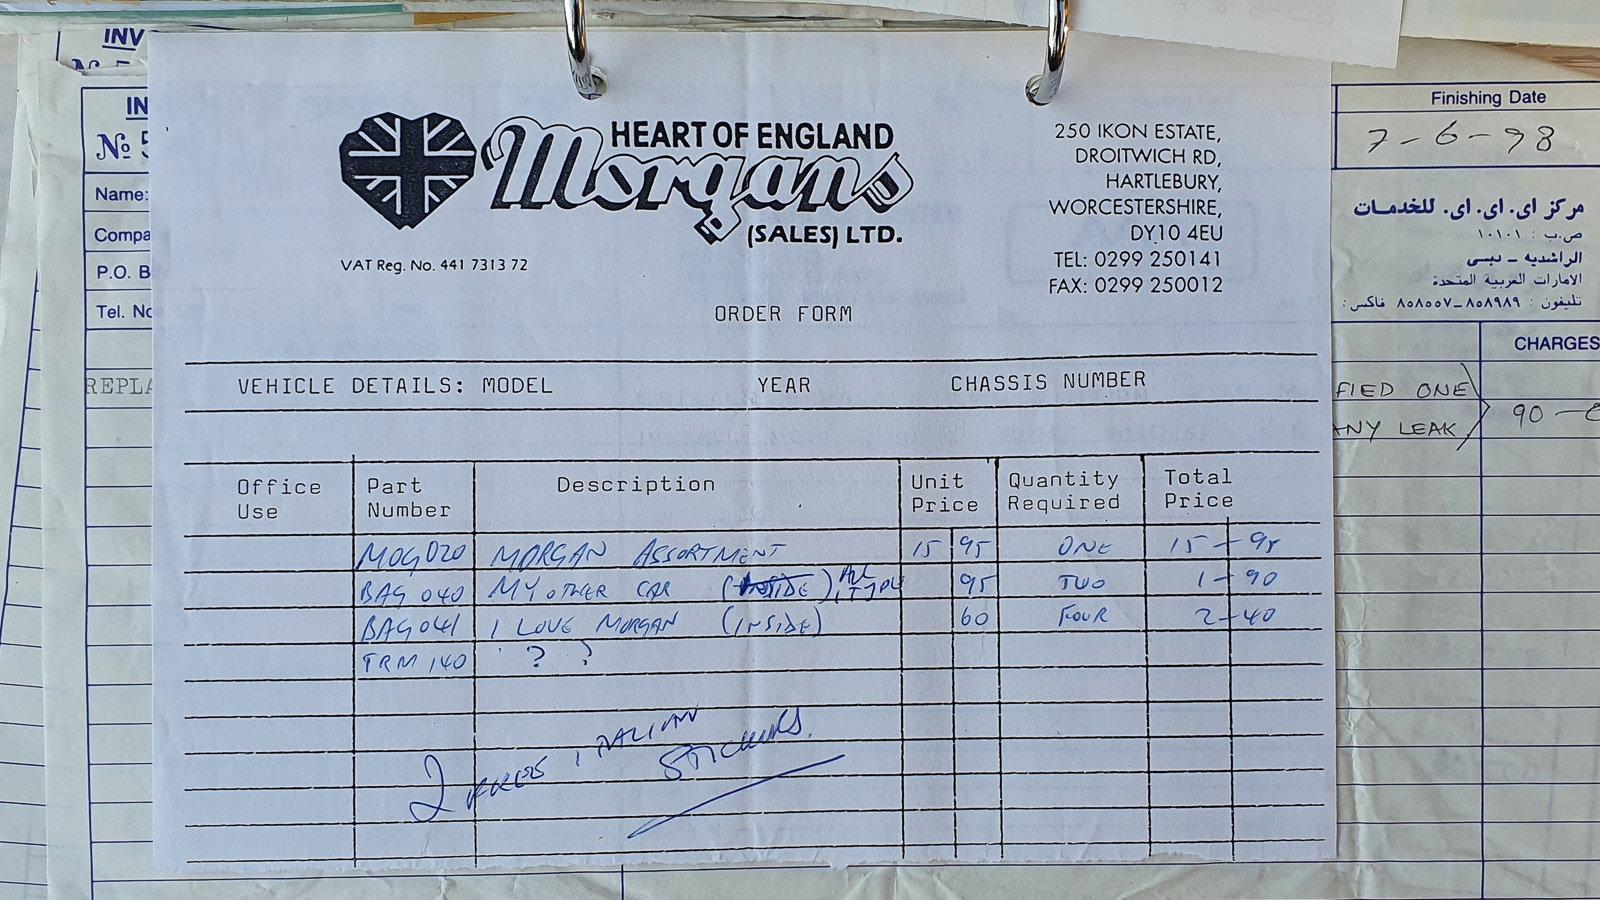 INV
IN
№ 5
Name:
Compa
P.O. B
Tel. No
REPLA
HEART OF ENGLAND
Morgans
(SALES) LTD.
VAT Reg. No. 441 7313 72
250 IKON ESTATE,
DROITWICH RD,
HARTLEBURY,
WORCESTERSHIRE,
DY10 4EU
TEL: 0299 250141
FAX: 0299 250012
ORDER FORM
VEHICLE DETAILS: MODEL YEAR CHASSIS NUMBER
Office Use Part Number Description Unit Price Quantity Required Total Price
MOG020 MORGAN ASSORTMENT 15 95 ONE 15 - 95
BAG 040 MY OTHER CAR 95 TWO 1 - 90
BAG041 I LOVE MORGAN (INSIDE) 60 FOUR 2 - 40
TRM 140 ? ?
2 ITALIAN
STICKERS.
Finishing Date
7-6-98
مركز اى. اى. اى. للخدمات
ص.ب : ١٠١٠١
الراشديه - دبى
الامارات العربية المتحدة
تليفون : ٨٥٨٩٨٩-٨٥٨٥٥٧ فاكس:
CHARGES
FIED ONE
ANY LEAK 90 -